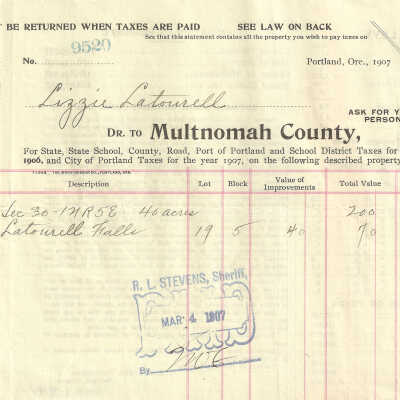 BE RETURNED WHEN TAXES ARE PAID SEE LAW ON BACK
See that this statement contains all the property you wish to pay taxes on
9520
No. Portland, Ore., 1907
Lizzie Latourell
ASK FOR
PERSON
DR. TO Multnomah County,
For State, State School, County, Road, Port of Portland and School District Taxes for
1906, and City of Portland Taxes for the year 1907, on the following described property
Description Lot Block Value of Improvements Total Value
Sec 30-1N R5E 40 acres 200
Latourell Falls 19 5 40 70
R. L. STEVENS, Sheriff,
MAR 4 1907
By